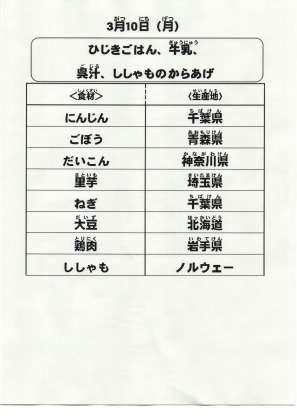 3月10日（月）
ひじきごはん、牛乳、
呉汁、ししゃものからあげ
＜食材＞ 〈生産地〉
にんじん 千葉県
ごぼう 青森県
だいこん 神奈川県
里芋 埼玉県
ねぎ 千葉県
大豆 北海道
鶏肉 岩手県
ししゃも ノルウェー